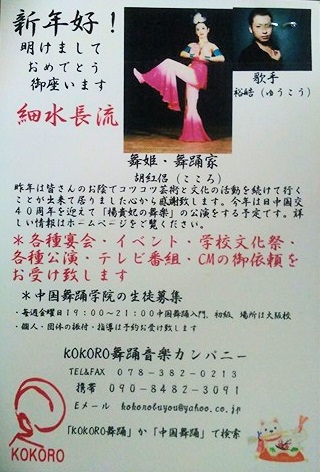 新年好！
明けまして
おめでとう
御座います
細水長流
歌手
裕皓（ゆうこう）
舞姫・舞踊家
胡紅侶（こころ）
昨年は皆さんのお陰でコツコツ芸術と文化の活動を続けて行く
ことが出来て居りました心から感謝致します。今年は日中国交
40周年を迎えて「楊貴妃の舞楽」の公演をする予定です。詳
しい情報はホームページをご覧ください。
＊各種宴会・イベント・学校文化祭・
各種公演・テレビ番組・CMの御依頼を
お受け致します
＊中国舞踊学院の生徒募集
・毎週金曜日19：00～21：00中国舞踊入門、初級、場所は大阪校
・個人・団体の振付・指導は予約お受け致します
KOKORO舞踊音楽カンパニー
TEL&FAX 078-382-0213
携帯 090-8482-3091
Eメール kokorobuyou@yahoo.co.jp
「KOKORO舞踊」か「中国舞踊」で検索
KOKORO